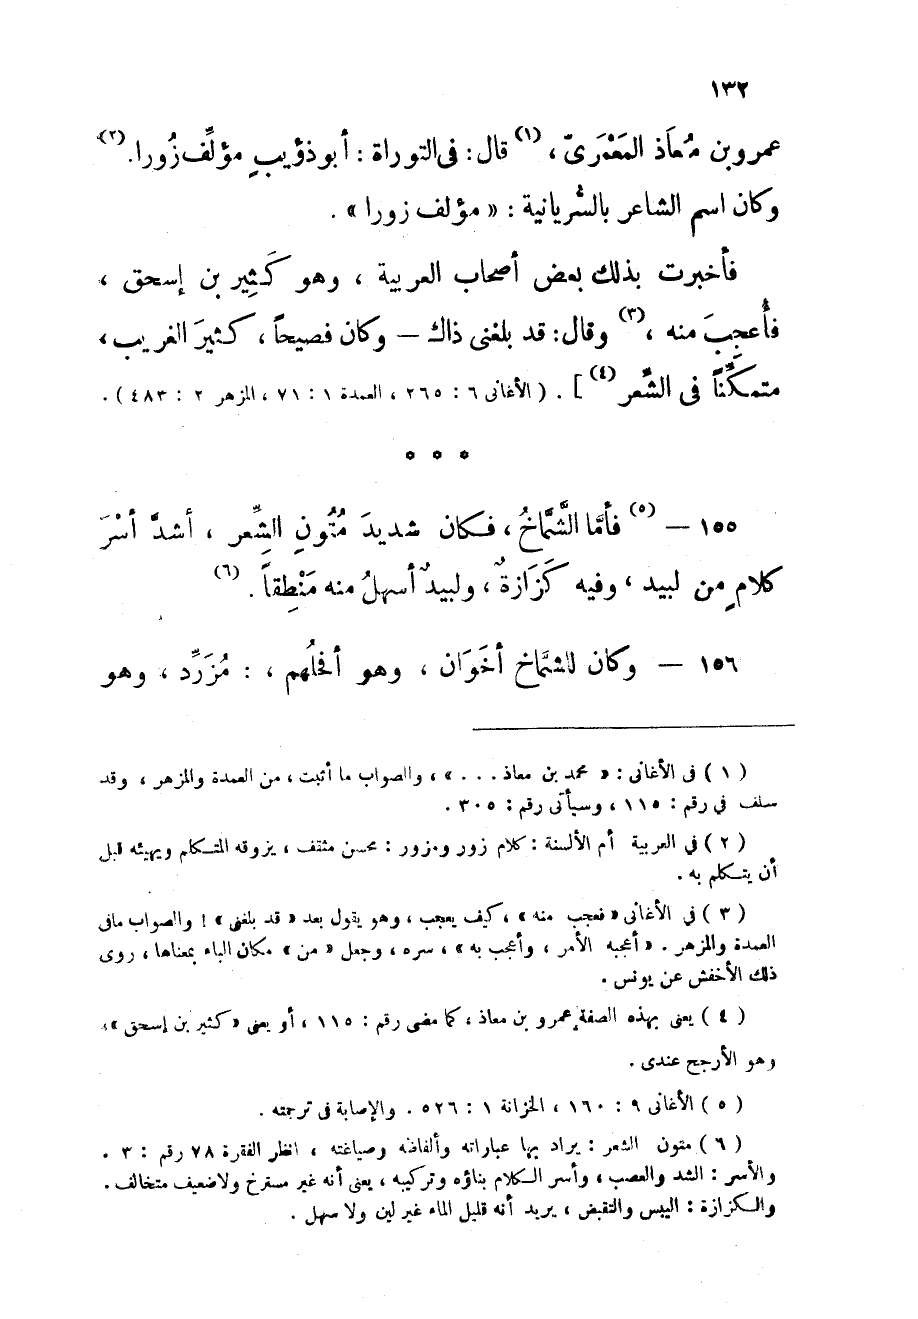 ١٣٢
عمرو بن مُعَاذ المَعْمَرىّ ،(١) قال : فى التوراة : أبو ذؤيبٍ مؤلِّف زُورا .(٢)
وكان اسم الشاعر بالسُّريانية : « مؤلف زورا » .
فأخبرت بذلك بعض أصحاب العربية ، وهو كَثِير بن إسحق ،
فأُعجِبَ منه ،(٣) وقال : قد بلغنى ذاك — وكان فصيحاً ، كثيرَ الغريب ،
متمكِّناً فى الشِّعر(٤) ] . ( الأغانى ٦ : ٢٦٥ ، العمدة ١ : ٧١ ، المزهر ٢ : ٤٨٣ ) .
* * *
١٥٥ —(٥) فأمَّا الشَّمَّاخُ ، فكان شديدَ مُتُونِ الشِّعر ، أشدَّ أسْرَ
كلامٍ من لبيد ، وفيه كَزَازةٌ ، ولبيدٌ أسهلُ منه مَنْطِقاً .(٦)
١٥٦ — وكان للشَّمَّاخ أخَوَان ، وهو أفحلُهم ، : مُزَرِّد ، وهو
( ١ ) فى الأغانى : « محمد بن معاذ . . . » ، والصواب ما أثبت ، من العمدة والمزهر ، وقد
سلف فى رقم : ١١٥ ، وسيأتى رقم : ٣٠٥ .
( ٢ ) فى العربية أم الألسنة : كلام زور ومزور : محسن مثقف ، يزوقه المتكلم ويهيئه قبل
أن يتكلم به .
( ٣ ) فى الأغانى « فعجب منه » ، كيف يعجب ، وهو يقول بعد « قد بلغنى » ! والصواب مافى
العمدة والمزهر . « أعجبه الأمر ، وأعجب به » ، سره ، وجعل « من » مكان الباء بمعناها ، روى
ذلك الأخفش عن يونس .
( ٤ ) يعنى بهذه الصفة عمرو بن معاذ ، كما مضى رقم : ١١٥ ، أو يعنى « كثير بن إسحق » ،
وهو الأرجح عندى .
( ٥ ) الأغانى ٩ : ١٦٠ ، الخزانة ١ : ٥٢٦ . والإصابة فى ترجمته .
( ٦ ) متون الشعر : يراد بها عباراته وألفاظه وصياغته ، انظر الفقرة ٧٨ رقم : ٣ .
والأسر : الشد والعصب ، وأسر الكلام بناؤه وتركيبه ، يعنى أنه غير مسترخ ولا ضعيف متخالف .
والكزازة : اليبس والتقبض ، يريد أنه قليل الماء غير لين ولا سهل .